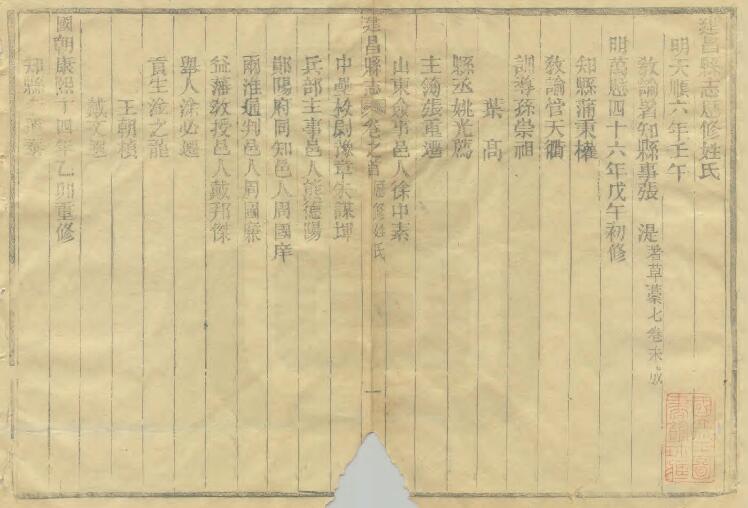 建昌縣志歷修姓氏
明天順六年壬午
教諭署知縣事張 湜 著草藁七卷未成
明萬歷四十六年戊午初修
知縣蒲秉權
教諭管天衢
訓導孫崇祖
葉 高
縣丞姚光胤
主簿張重
山東僉事邑人徐中素
建昌縣志 卷之首 歷修姓氏 一
中 校尉豫章朱謀㙔
兵部主事邑人熊德陽
鄖陽府同知邑人周國庠
兩淮通判邑人周國
益藩教授邑人戴邦傑
舉人涂必
貢生淦之龍
王朝楨
戴文
國朝康熙十四年乙卯重修
知縣